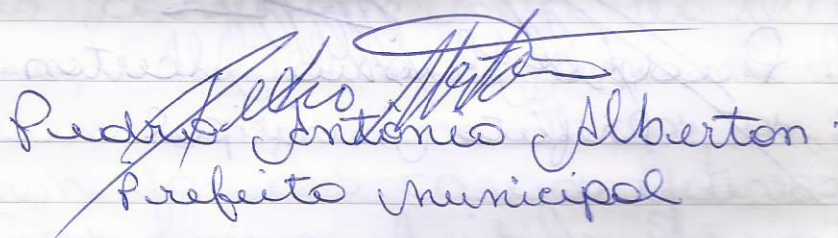 Pedro Alberton
Pedro Antônio Alberton.
Prefeito Municipal